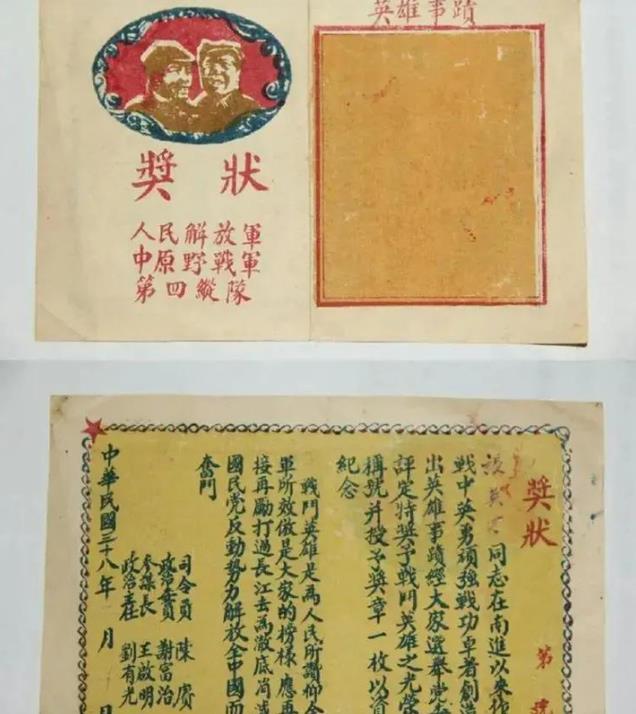 英雄事蹟
獎狀
人民解放軍
中原野戰軍
第四縱隊
獎狀
第
張英才同志在南進以來作
戰中英勇頑強戰功卓著創造
出英雄事蹟經大家選舉党委
評定特獎予戰鬥英雄之光榮
稱號并授予獎章一枚以資
紀念
戰鬥英雄是為人民所讚仰全
軍所效倣是大家的榜樣應再
接再勵打過長江去為澈底消滅
國民党反動勢力解放全中國而
奮鬥
司令員 陳賡
政治委員 謝富治
參謀長 王啟明
政治主任 劉有光
中華民國三十八年一月 日